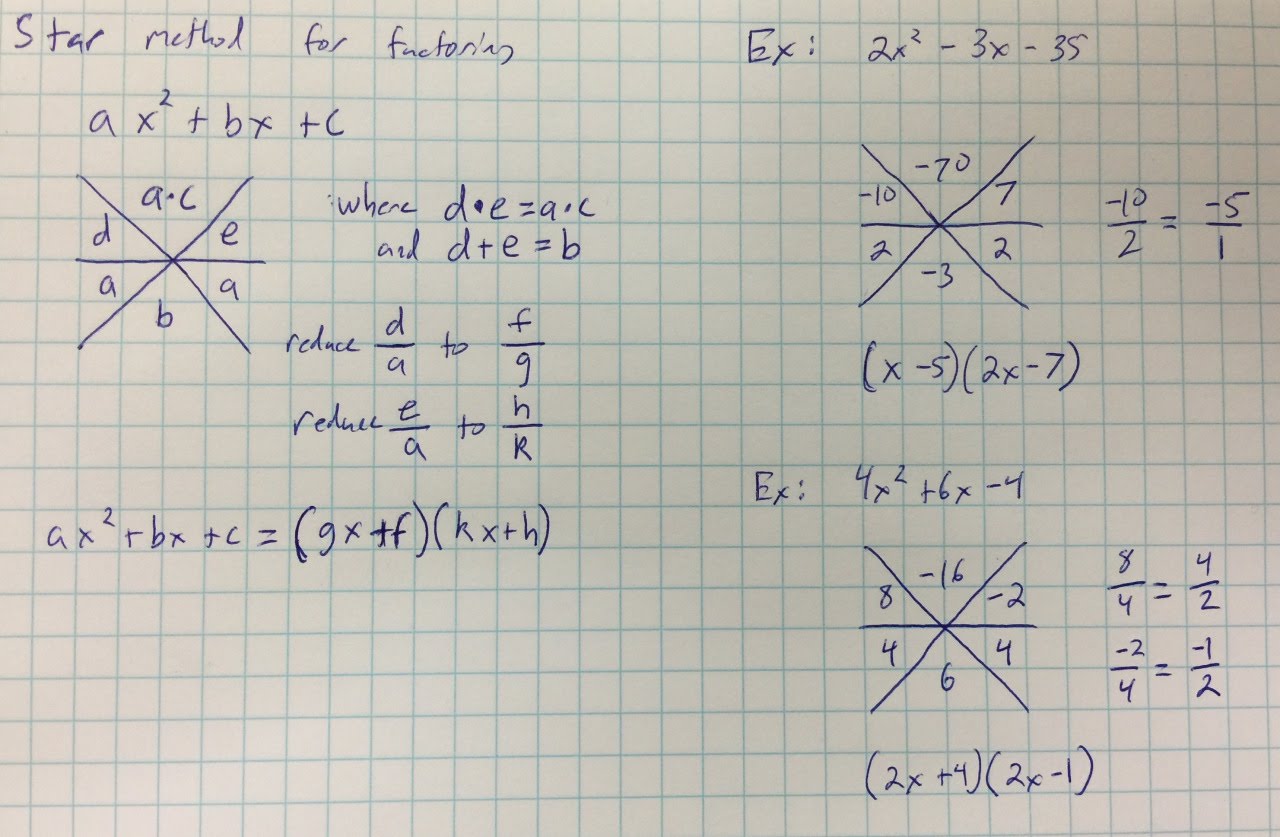 Star method for factoring
ax² + bx + c
a·c
d e
a a
b
where d·e = a·c
and d + e = b
reduce d/a to f/g
reduce e/a to h/k
ax² + bx + c = (gx + f)(kx + h)
Ex: 2x² - 3x - 35
-70
-10 7
2 2
-3
-10/2 = -5/1
(x - 5)(2x - 7)
Ex: 4x² + 6x - 4
-16
8 -2
4 4
6
8/4 = 4/2
-2/4 = -1/2
(2x + 4)(2x - 1)